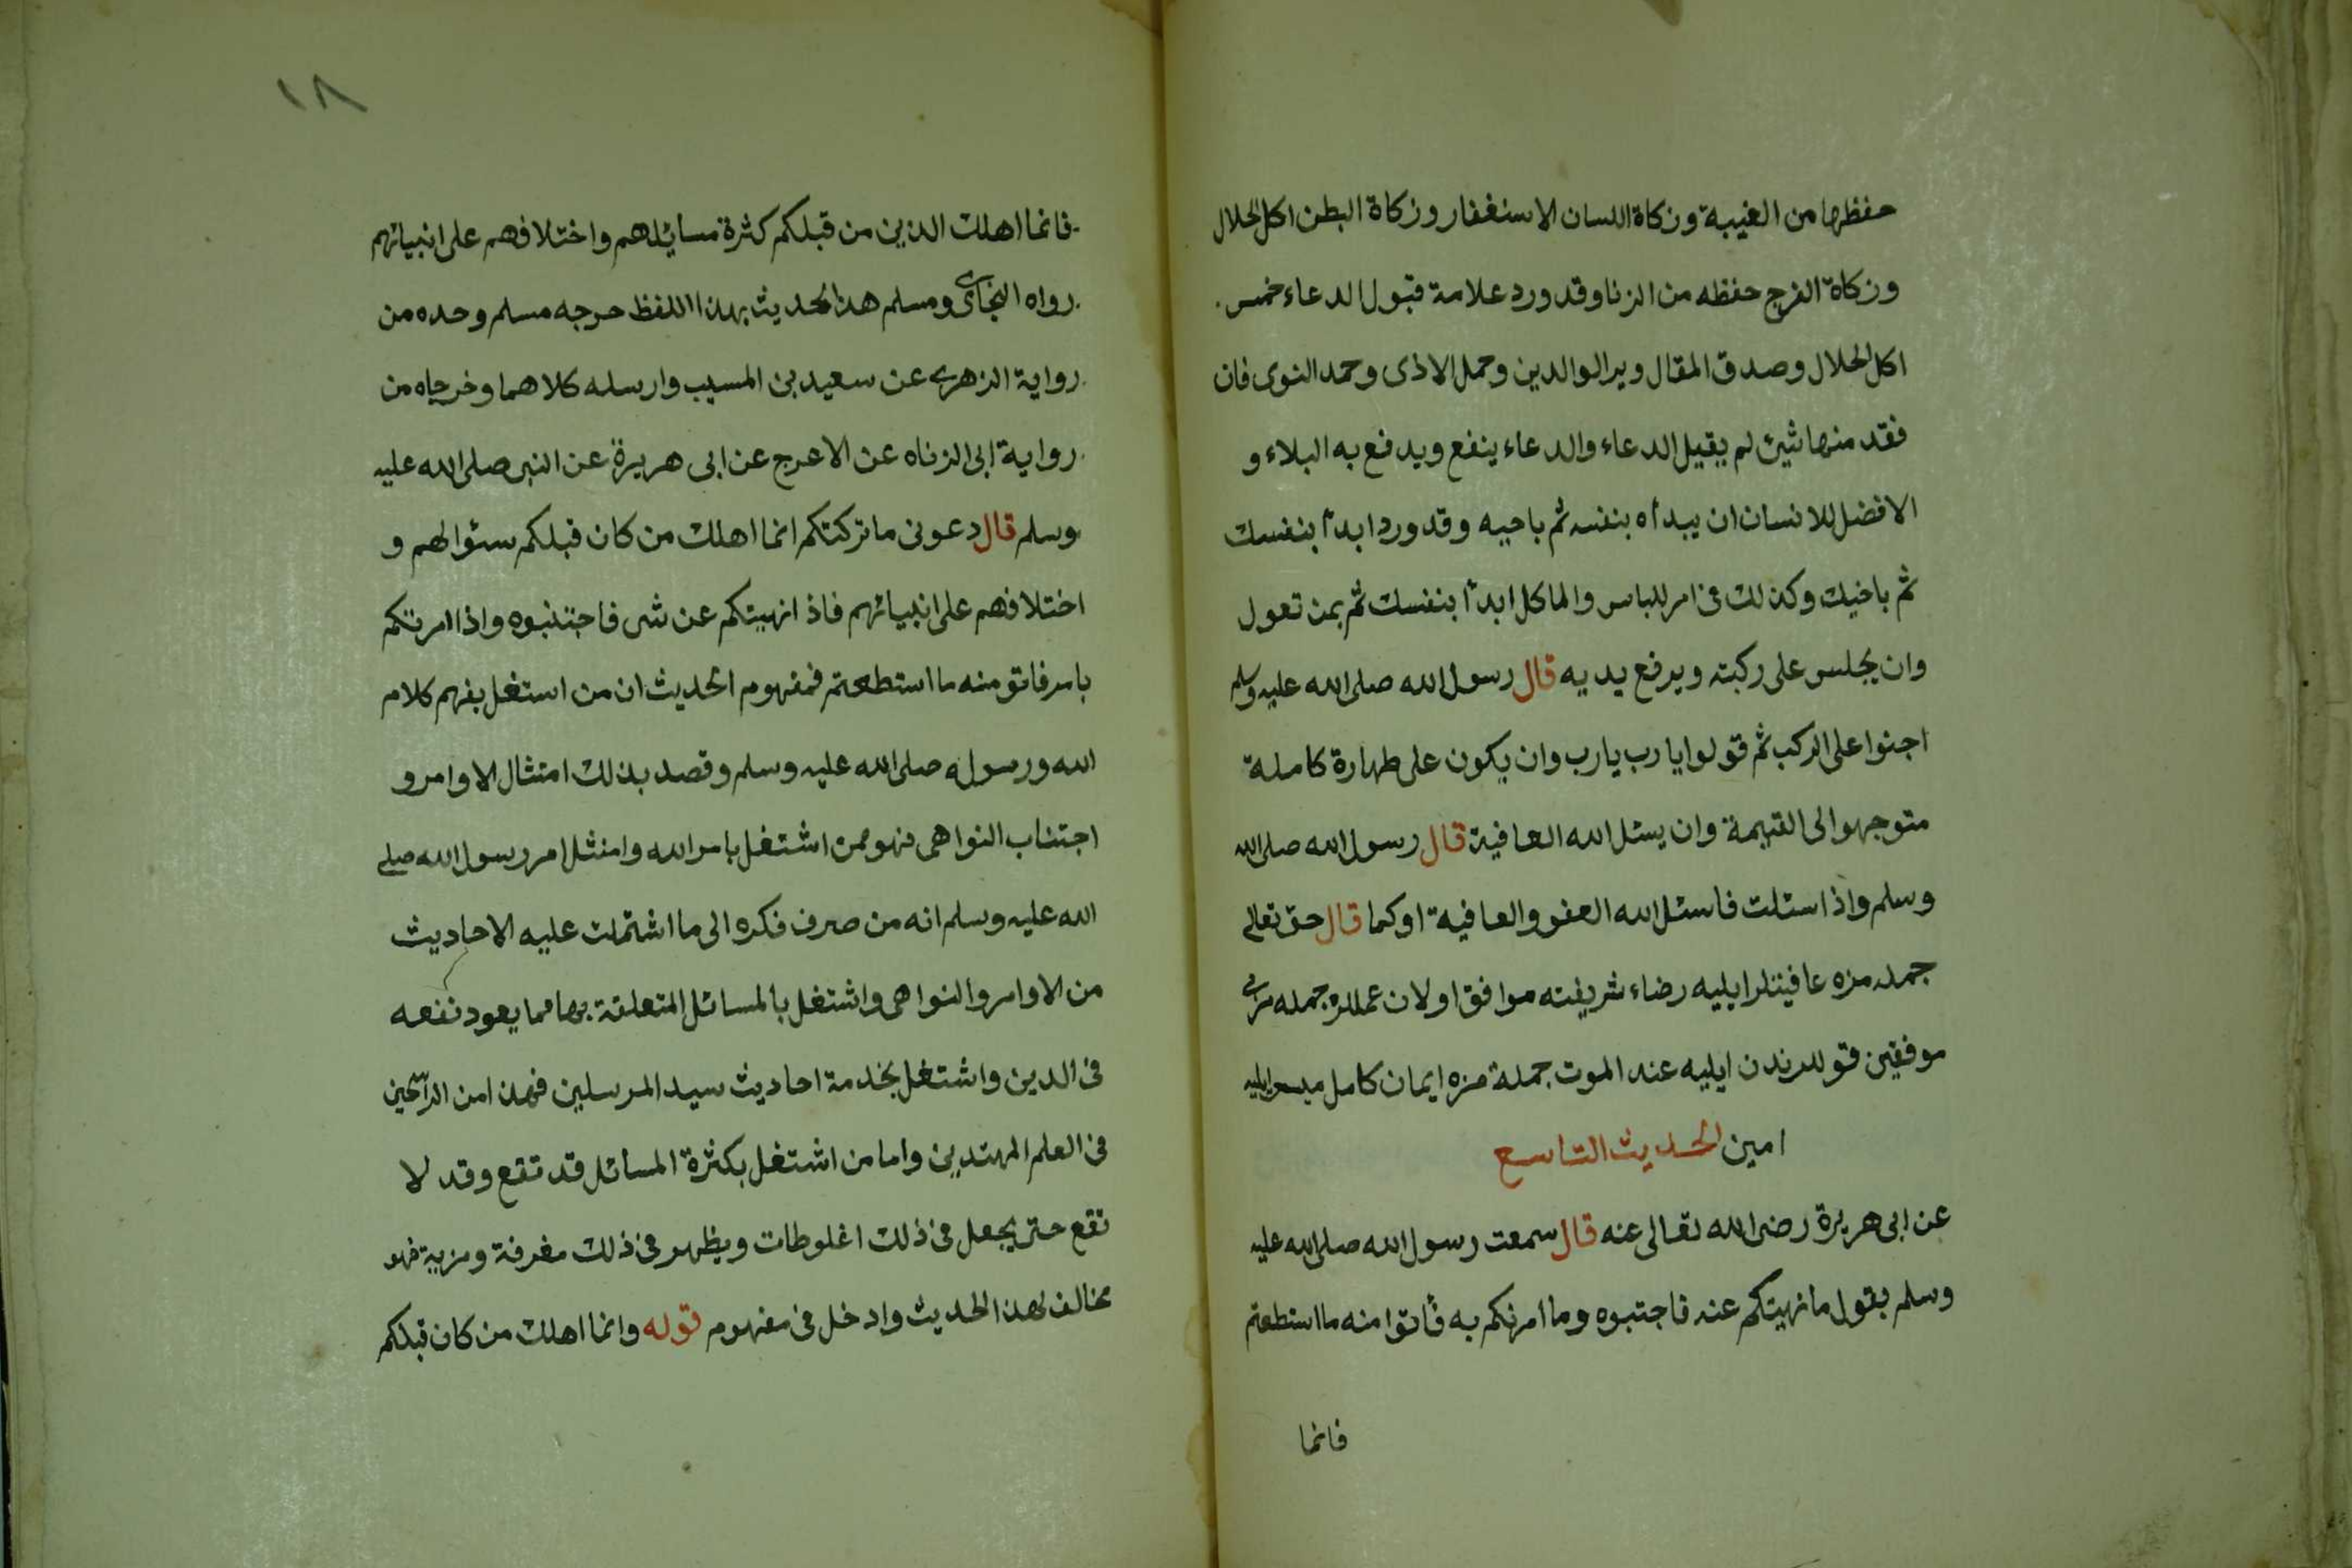 حفظها من الغيبة وزكاة اللسان الاستغفار وزكاة البطن اكل الحلال
وزكاة الفرج حفظه من الزنا وقد ورد علامة قبول الدعاء خمس
اكل الحلال وصدق المقال وبر الوالدين وحمل الاذى وحمد النوى فان
فقد منها شئ لم يقبل الدعاء والدعاء ينفع ويدفع به البلاء و
الافضل للانسان ان يبدأه بنفسه ثم باخيه وقد ورد ابدأ بنفسك
ثم باخيك وكذلك فى امر للباس والماكل ابدأ بنفسك ثم بمن تعول
وان يجلس على ركبته ويرفع يديه قال رسول الله صلى الله عليه وسلم
اجثوا على الركب ثم قولوا يا رب يا رب وان يكون على طهارة كاملة
متوجهوا الى القبمة وان يسئل الله العافية قال رسول الله صلى الله
وسلم واذا سئلت فاسئل الله العفو والعافية او كما قال حق تعالى
جمله مزه عافيتلر ايليه رضاء شريفته موافق اولان عمللره جمله مزى
موفقين قوللرندن ايليه عند الموت جملة مزه ايمان كامل ميسر ايليه
امين الحديث التاسع
عن ابى هريرة رضى الله تعالى عنه قال سمعت رسول الله صلى الله عليه
وسلم يقول ما نهيتكم عنه فاجتبوه وما امرتكم به فأتوا منه ما استطعتم
فانما
١٨
فانما اهلك الذين من قبلكم كثرة مسائلهم واختلافهم على انبيائهم
رواه البخارى ومسلم هذا الحديث بهذا اللفظ خرجه مسلم وحده من
رواية الزهرى عن سعيد بن المسيب وارسله كلاهما وخرجاه من
رواية ابى الزناه عن الاعرج عن ابى هريرة عن النبى صلى الله عليه
وسلم قال دعونى ما تركتكم انما اهلك من كان قبلكم سئوالهم و
اختلافهم على انبيائهم فاذا نهيتكم عن شى فاجتنبوه واذا امرتكم
بامر فاتو منه ما استطعتم فمفهوم الحديث ان من استغل بفهم كلام
الله ورسوله صلى الله عليه وسلم وقصد بذلك امتثال الاوامر و
اجتناب النواهى فهو ممن اشتغل بامر الله وامتثل امر رسول الله صلى
الله عليه وسلم انه من صرف فكره الى ما اشتملت عليه الاحاديث
من الاوامر والنواهى واشتغل بالمسائل المتعلقة بها مما يعود نفعه
فى الدين واشتغل بخدمة احاديث سيد المرسلين فهذا من الراسخين
فى العلم المهتديين واما من اشتغل بكثرة المسائل قد تقع وقد لا
تقع حتى يجعل فى ذلك اغلوطات ويظهر فى ذلك مغرفة ومزية فهو
مخالف لهذا الحديث وادخل فى مفهوم قوله وانما اهلك من كان قبلكم